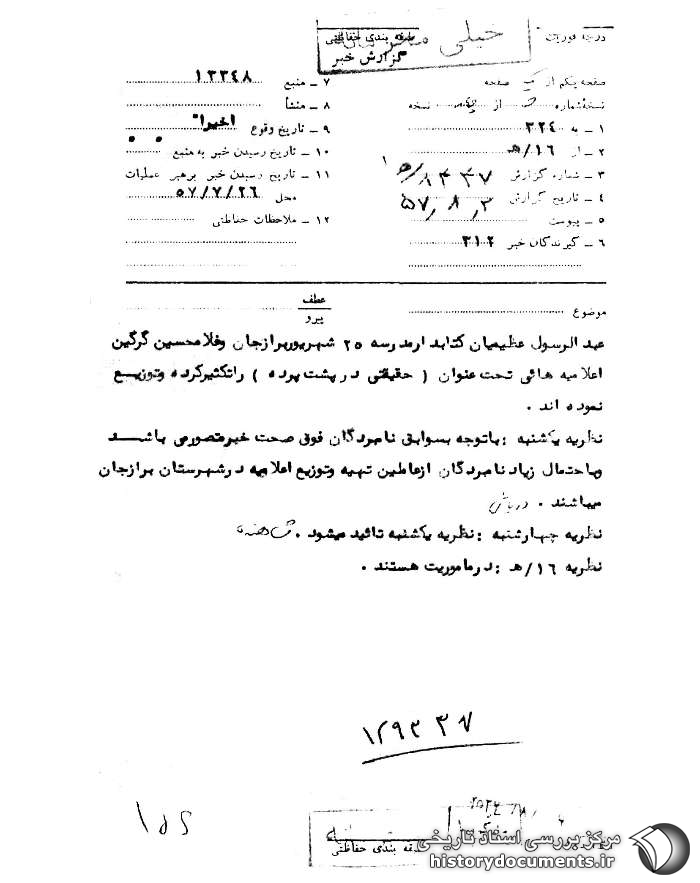 خیلی محرمانه
درجه فوریت
طبقه بندی حفاظتی
گزارش خبر
صفحه یکم از صفحه
نسخه شماره از نسخه
۱ ـ به ۳۲٤
۲ ـ از ۱۶/هـ
۳ ـ شماره گزارش ۸۴۳۷/
۴ ـ تاریخ گزارش ۵۷/۸/۳
۵ ـ پیوست
۶ ـ گیرندگان خبر ۳۱۲
۷ ـ منبع ۱۳۳٤۸
۸ ـ منشأ
۹ ـ تاریخ وقوع اخیرا"
۱۰ ـ تاریخ رسیدن خبر به منبع
۱۱ ـ تاریخ رسیدن خبر برهبر عملیات
محل ۵۷/۷/۲۶
۱۲ ـ ملاحظات حفاظتی
موضوع
عطف
پیرو
عبدالرسول عظیمیان کتابدار مدرسه ۲۵ شهریور برازجان وغلامحسین گرگین
اعلامیه هائی تحت عنوان ( حقیقتی در پشت پرده ) راتکثیرکرده وتوزیع
نموده اند .
نظریه یکشنبه : باتوجه بسوابق نامبردگان فوق صحت خبرمتصور می باشد
وباحتمال زیاد نامبردگان ازعاملین تهیه وتوزیع اعلامیه درشهرستان برازجان
میباشند .
نظریه چهارشنبه : نظریه یکشنبه تائید میشود .
نظریه ۱۶/هـ : درماموریت هستند .
۱۲۹۳۳۷
طبقه بندی حفاظتی
مرکز بررسی اسناد تاریخی
historydocuments.ir